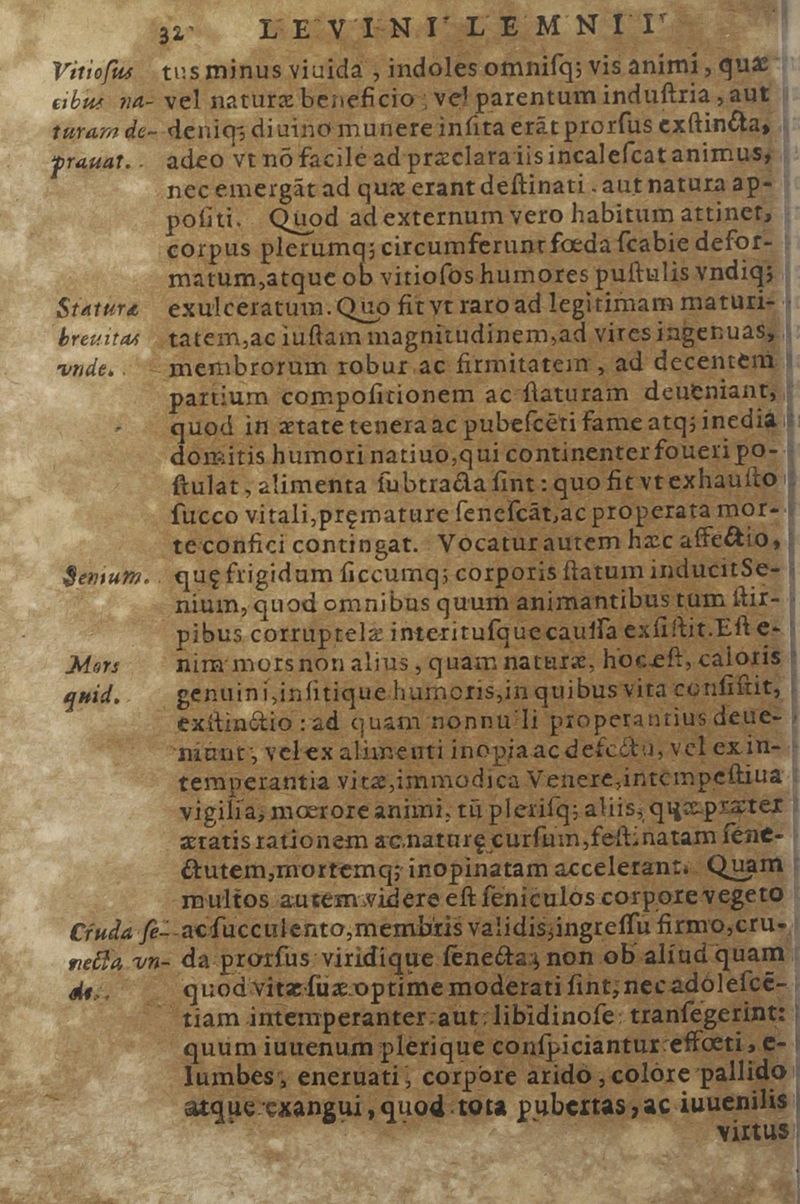 32 LEVINI LEMNII
Vitioſus tus minus viuida, indoles omniſq; vis animi, quæ
cibus na- vel naturæ beneficio, vel parentum induſtria, aut
turam de- deniq; diuino munere inſita erãt prorſus exſtincta,
prauat. adeo vt nõ facile ad præclara iis incaleſcat animus,
nec emergãt ad quæ erant deſtinati. aut natura ap-
poſiti. Quod ad externum vero habitum attinet,
corpus plerumq; circumferunt fœda ſcabie defor-
matum, atque ob vitioſos humores puſtulis vndiq;
Statura exulceratum. Quo fit vt raro ad legitimam maturi-
breuitas tatem, ac iuſtam magnitudinem, ad vires ingenuas,
vnde. membrorum robur ac firmitatem, ad decentem
partium compoſitionem ac ſtaturam deueniant,
quod in ætate tenera ac pubeſcẽti fame atq; inedia
domitis humori natiuo, qui continenter foueri po-
ſtulat, alimenta ſubtracta ſint: quo fit vt exhauſto
ſucco vitali, pręmature ſeneſcãt, ac properata mor-
te confici contingat. Vocatur autem hæc affectio,
Senium. quę frigidum ſiccumq; corporis ſtatum inducit Se-
nium, quod omnibus quum animantibus tum ſtir-
pibus corruptelæ interituſque cauſſa exſiſtit. Eſt e-
Mors nim mors non alius, quam naturæ, hoc eſt, caloris
quid. genuini, inſitique humoris, in quibus vita conſiſtit,
exſtinctio: ad quam nonnulli properantius deue-
niunt, vel ex alimenti inopia ac defectu, vel ex in-
temperantia vitæ, immodica Venere, intempeſtiua
vigilia, mœrore animi, tũ pleriſq; aliis, quæ præter
ætatis rationem ac naturę curſum, feſtinatam ſene-
ctutem, mortemq; inopinatam accelerant. Quam
multos autem videre eſt ſeniculos corpore vegeto
Cruda ſe- ac ſucculento, membris validis, ingreſſu firmo, cru-
necta vn- da prorſus viridique ſenecta; non ob aliud quam
de. quod vitæ ſuæ optime moderati ſint, nec adoleſcẽ-
tiam intemperanter aut libidinoſe tranſegerint:
quum iuuenum plerique conſpiciantur effœti, e-
lumbes, eneruati, corpore arido, colore pallido
atque exangui, quod tota pubertas, ac iuuenilis
virtus